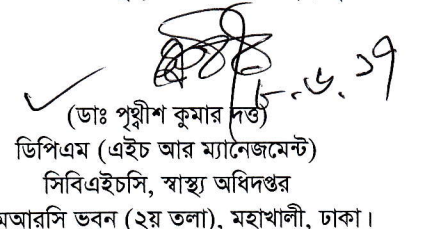 ৮.৬.১৭
(ডাঃ পৃথ্বীশ কুমার দত্ত)
ডিপিএম (এইচ আর ম্যানেজমেন্ট)
সিবিএইচসি, স্বাস্থ্য অধিদপ্তর
মআরসি ভবন (২য় তলা), মহাখালী, ঢাকা।